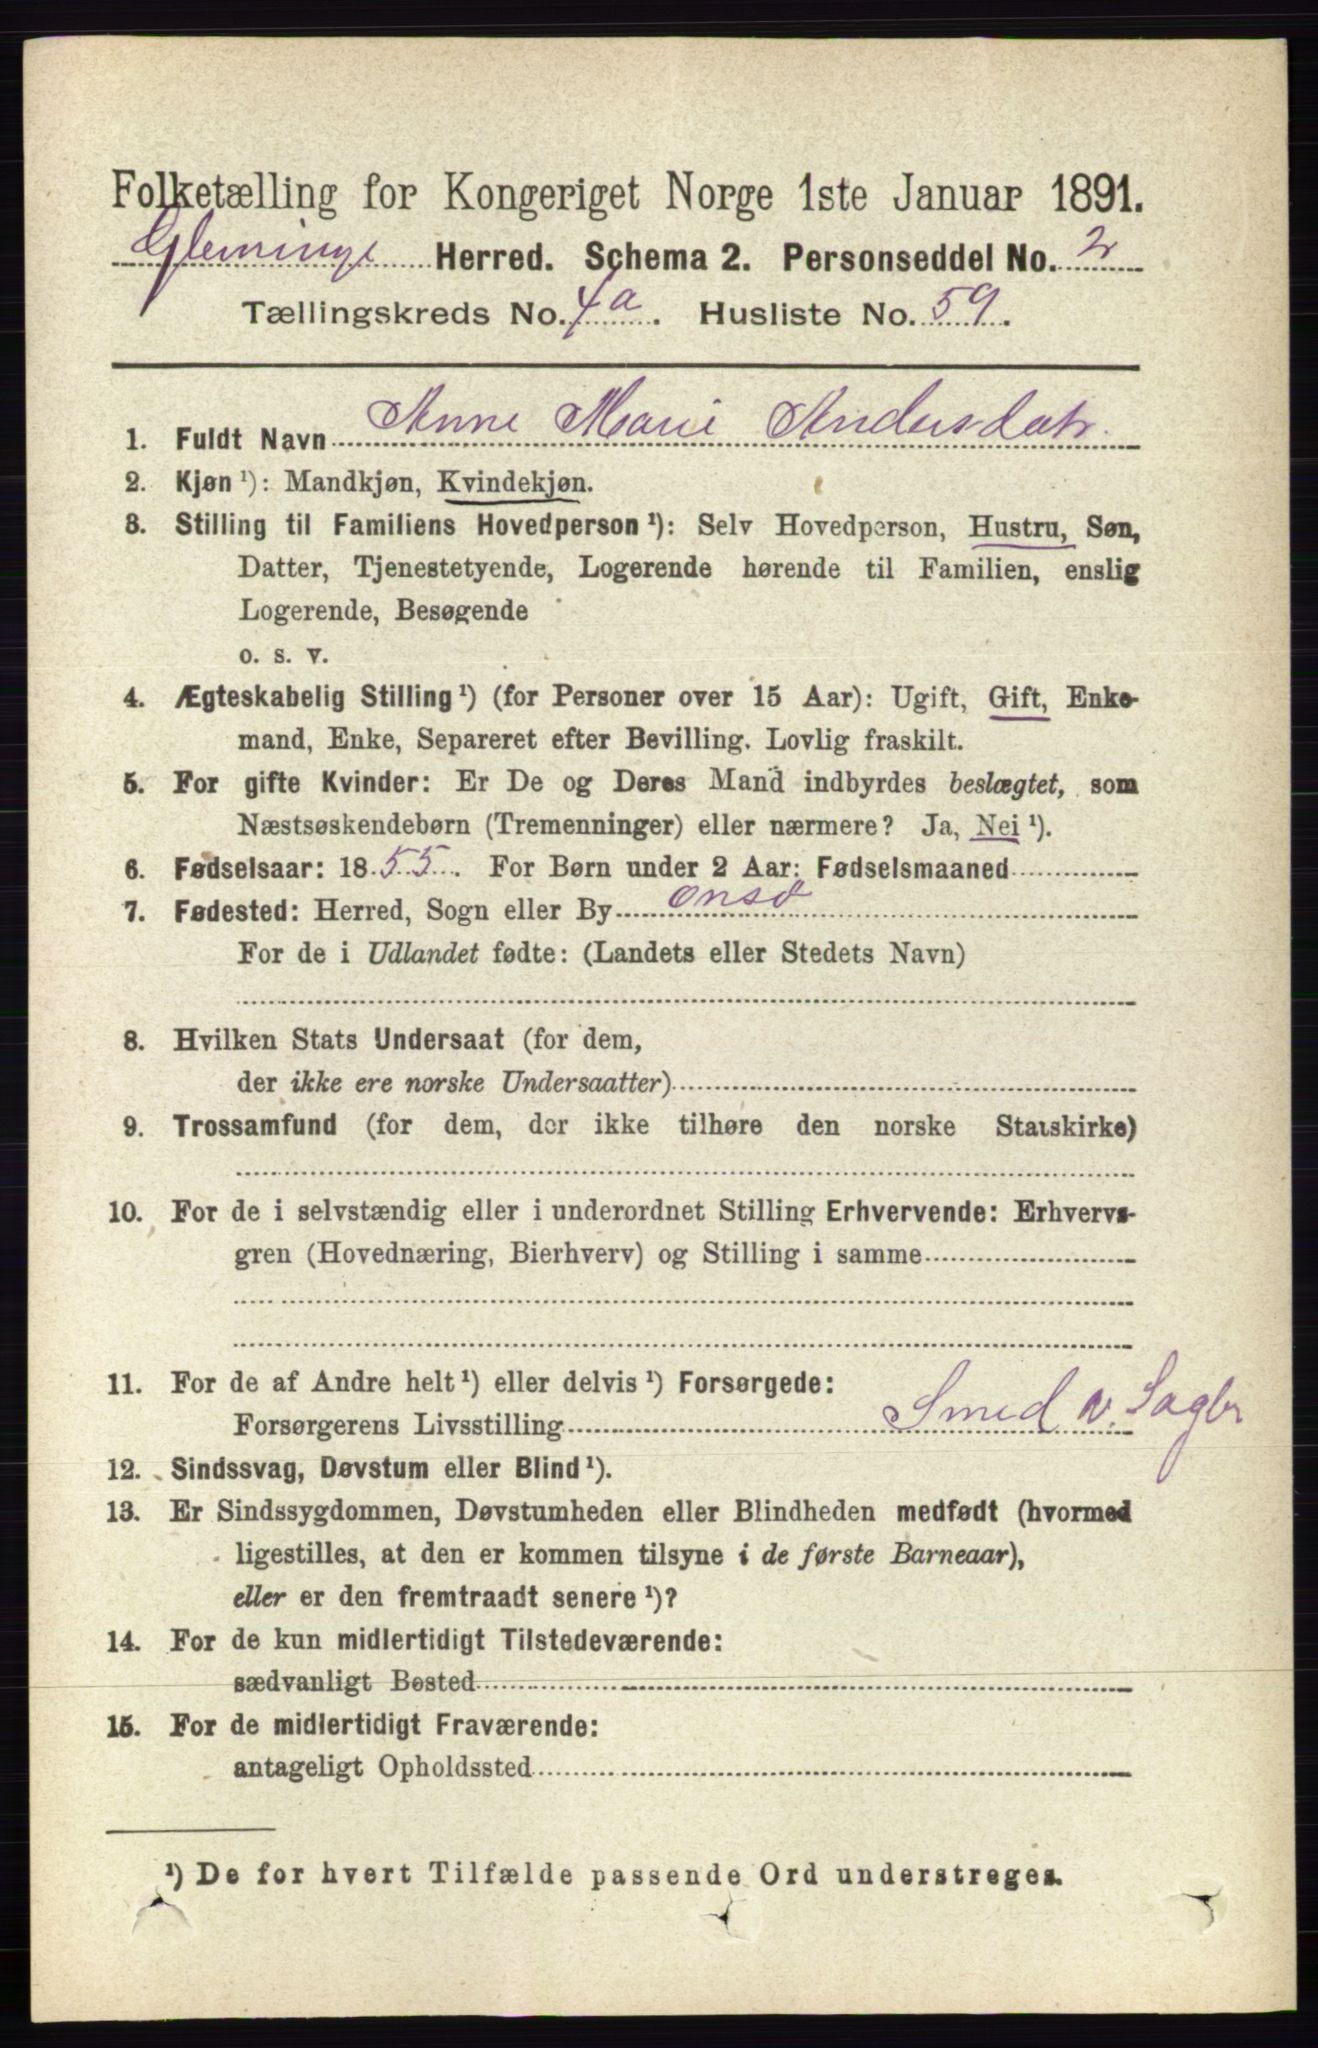 Folketælling for Kongeriget Norge 1ste Januar 1891.
Glemminge Herred. Schema 2. Personseddel No. 2
Tællingskreds No. 4a. Husliste No. 59.
1. Fuldt Navn Anne Marie Andersdatr.
2. Kjøn ¹): Mandkjøn, Kvindekjøn.
3. Stilling til Familiens Hovedperson ¹): Selv Hovedperson, Hustru, Søn,
Datter, Tjenestetyende, Logerende hørende til Familien, enslig
Logerende, Besøgende
o. s. v.
4. Ægteskabelig Stilling ¹) (for Personer over 15 Aar): Ugift, Gift, Enke-
mand, Enke, Separeret efter Bevilling. Lovlig fraskilt.
5. For gifte Kvinder: Er De og Deres Mand indbyrdes beslægtet, som
Næstsøskendebørn (Tremenninger) eller nærmere? Ja, Nei ¹).
6. Fødselsaar: 1855. For Børn under 2 Aar: Fødselsmaaned
7. Fødested: Herred, Sogn eller By Onsø
For de i Udlandet fødte: (Landets eller Stedets Navn)
8. Hvilken Stats Undersaat (for dem,
der ikke ere norske Undersaatter)
9. Trossamfund (for dem, der ikke tilhøre den norske Statskirke)
10. For de i selvstændig eller i underordnet Stilling Erhvervende: Erhvervs-
gren (Hovednæring, Bierhverv) og Stilling i samme
11. For de af Andre helt ¹) eller delvis ¹) Forsørgede:
Forsørgerens Livsstilling Smed v. Sagbr
12. Sindssvag, Døvstum eller Blind ¹).
13. Er Sindssygdommen, Døvstumheden eller Blindheden medfødt (hvormed
ligestilles, at den er kommen tilsyne i de første Barneaar),
eller er den fremtraadt senere ¹)?
14. For de kun midlertidigt Tilstedeværende:
sædvanligt Bosted
15. For de midlertidigt Fraværende:
antageligt Opholdssted
¹) De for hvert Tilfælde passende Ord understreges.